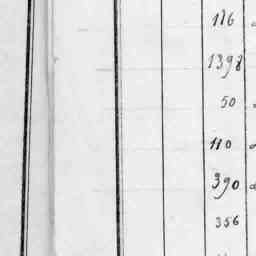 116
1398
50
110
390
356